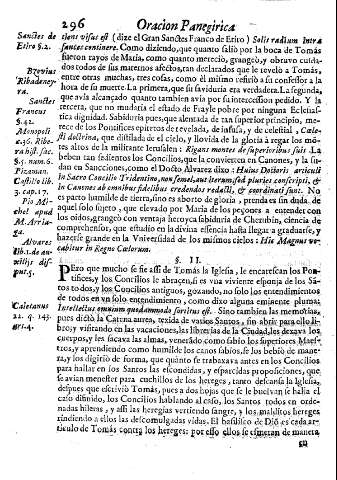 296 Oracion Panegirica
Sanctes de Etiro §.2.
Brevius Ribadeneyra.
Sanctes Francus §.42.
Monopoli 2.36. Ribera hist. sac. §.5. num.6.
Pizaman. Castillo lib. 3. cap.7.
Pio Michel apud M. Arriaga.
Alvares lib.1. de auxilijs disput.5.
tieni visus est (dize el Gran Sanctes Franco de Etiro) Solis radium intra
santes continere. Como diziendo, que quanto saliò por la boca de Tomàs
fueron rayos de Maria, como quanto mereciò, grangeò, y obruvo cuida-
dos todos de sus maternos afectos, tan declarados que le revelò a Tomàs,
entre otras muchas, tres cosas, como èl mismo refiriò a su confessor a la
hora de su muerte. La primera, que su saviduria era verdadera. La segunda,
que avia alcançado quanto tambien avia por su intercession pedido. Y la
tercera, que no mudaria el estado de Frayle pobre por ninguna Eclesias-
tica dignidad. Sabiduria pues, que alentada de tan superior principio, me-
rece de los Pontifices epictos de revelada, de infusa, y de celestial, Cæle-
sti doctrina, que distilada de el cielo, y llovida de la gloria à regar los mõ-
tes altos de la militante Ierusalen: Rigans montes de superioribus suis. La
beben tan sedientos los Concilios, que la convierten en Canones, y la fun-
dan en Sancciones, como el Docto Alvarez dixo: Huius Doctoris articuli
in Sacro Concilio Tridentino, non semel, aut iterum sed pluries conscripti, &
in Canones ab omnibus fidelibus credendos redacti, & coordinati sunt. No
es parto humilde de tierra, sino es aborto de gloria, prenda es sin duda de
aquel solo sujeto, que elevado por Maria de los pegones a entender con
los oidos, grangeò con ventaja heroyca sabiduria de Cherubin, ciencia de
comprehensor, que estudio en la divina essencia hasta llegar a graduarse, y
hazerse grande en la Vniversidad de los mismos cielos: Hic Magnus vo-
cabitur in Regno Cælorum.
§. II.
Caietanus 22. q. 143. art.4.
Pero que mucho se fie assi de Tomàs la Iglesia, le encarescan los Pon-
tifices, y los Concilios le abracen, si es vna viviente esponja de los San-
tos todos, y los Concilios antiguos, gozando, no solo los entendimientos
de todos en vn solo entendimiento, como dixo alguna eminente pluma:
Intellectus omnium quodammodo sortitus est. Sino tambien las memorias,
pues dictò la Catena aurea, texida de varios Santos, sin abrir para ello li-
bro; y visitando en las vacaciones, las librerias de la Ciudad, les dexava los
cuerpos, y les sacava las almas, venerado como sabio los superiores Maes-
tros, y aprendiendo como humilde los canos sabios, se los bebió de mane-
ra, y los digiriò de forma, que quanto se trabaxava antes en los Concilios
para hallar en los Santos las escondidas, y esparcidas proposiciones, que
se avian menester para cuchillos de los hereges, tanto descansa la Iglesia,
despues que escriviò Tomàs, pues a dos hojas que se le buelvan se halla el
caso difinido, los Concilios hablando al caso, los Santos todos en orde-
nadas hileras, y assi las heregias vertiendo sangre, y los malditos hereges
rindiendo a ellos las descomulgadas vidas. El basilisco de Diõ es cada ar-
ticulo de Tomàs contra los hereges: por esso ellos se esmeran de manera
en